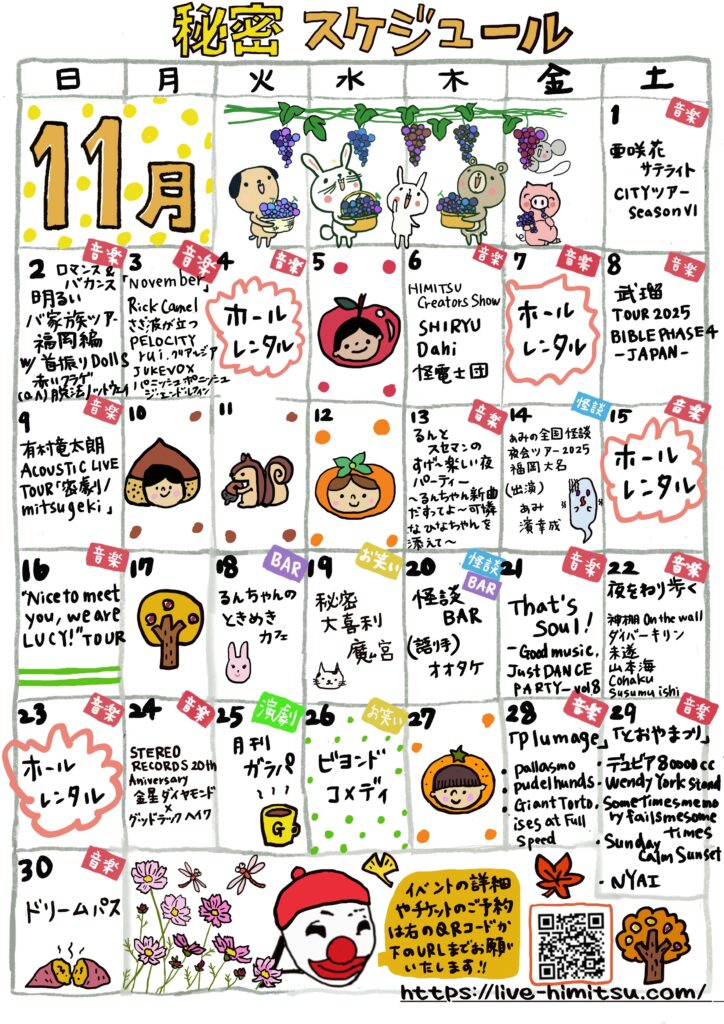 秘密 スケジュール
日 月 火 水 木 金 土
11月
1
音楽
亜咲花
サテライト
CITYツアー
Season VI
2
音楽
ロマンス&
バカンス
明るい
バ家族ツアー
福岡編
w/首振りDolls
赤いクラゲ
3
音楽
「November」
Rick Camel
さざ波が立つ
PELOCITY
JUKEVOX
パニッシュポニッシュ
4
音楽
ホール
レンタル
5
6
音楽
HIMITSU
Creators Show
SHIRYU
Dahi
怪電士団
7
音楽
ホール
レンタル
8
音楽
武瑠
TOUR 2025
BIBLE PHASE 4
-JAPAN-
9
音楽
有村竜太朗
ACOUSTIC LIVE
TOUR「蜜劇/
mitsugeki」
10
11
12
13
音楽
るんと
スセマンの
すげ〜楽しい夜
パーティー
〜るんちゃん新曲
だすってよ〜可憐
なひなちゃんを
添えて〜
14
怪談
あみの全国怪談
夜会ツアー2025
福岡大名
(出演)
あみ
濱幸成
15
音楽
ホール
レンタル
16
音楽
"Nice to meet
you, we are
LUCY!" TOUR
17
18
BAR
るんちゃんの
ときめき
カフェ
19
お笑い
秘密
大喜利
魔宮
20
怪談
BAR
怪談
BAR
(語り手)
オオタケ
21
音楽
That's
Soul!
-Good music,
Just DANCE
PARTY-vol8
22
音楽
夜をわり歩く
神棚 On the wall
ダイバーキリン
未遂
山本海
Cohaku
Susumu ishi
23
音楽
ホール
レンタル
24
音楽
STEREO
RECORDS 20th
Aniversary
金星ダイヤモンド
×
グッドテックヘイワ
25
演劇
月刊
ガラパ
G
26
お笑い
ビヨンド
コメディ
27
28
音楽
「Plumage」
・pallasmo
・pudelhunds
・Giant Torto
ises at Full
Speed
29
音楽
「とおやまプリ」
・デュビア80000cc
・Wendy York Stand
・Sometimes memo
ry fails me some
times
・Sunday
Calm Sunset
・NYAI
30
音楽
ドリームパス
イベントの詳細
やチケットのご予約
は右のQRコードか
下のURLまでお願い
いたします!!
https://live-himitsu.com/